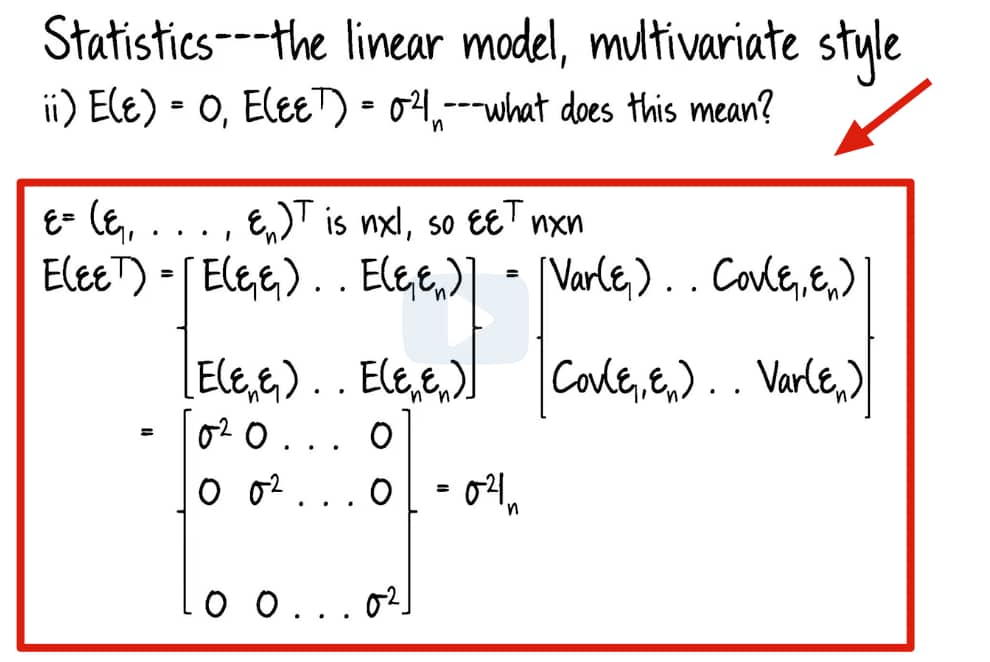 Statistics---the linear model, multivariate style
ii) E(ε) = 0, E(εεᵀ) = σ²Iₙ---what does this mean?
ε= (ε₁, . . . . , εₙ)ᵀ is nx1, so εεᵀ nxn
E(εεᵀ) = [ E(ε₁ε₁) . . E(ε₁εₙ) ] = [ Var(ε₁) . . Cov(ε₁,εₙ) ]
[ E(εₙε₁) . . E(εₙεₙ) ] [ Cov(ε₁,εₙ) . . Var(εₙ) ]
= [ σ² 0 . . . 0
0 σ² . . . 0 = σ²Iₙ
0 0 . . . σ² ]